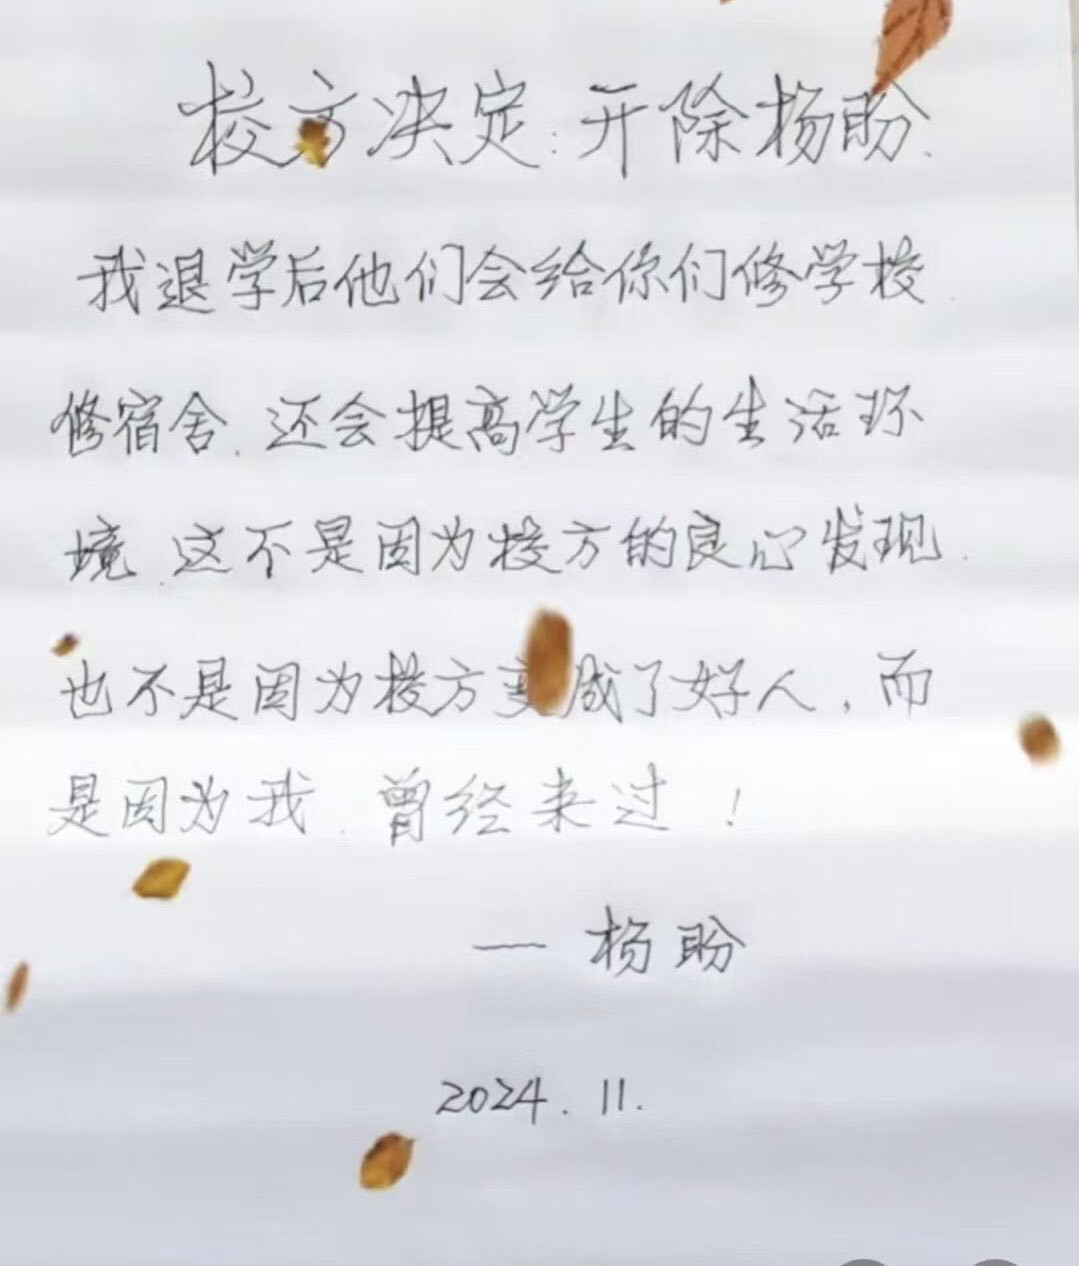 校方决定:开除杨盼.
我退学后他们会给你们修学校.
修宿舍.还会提高学生的生活环
境.这不是因为校方的良心发现.
也不是因为校方变成了好人,而
是因为我.曾经来过!
— 杨盼
2024.11.